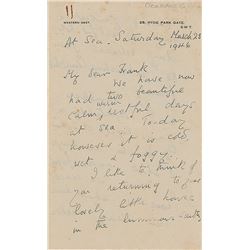 WESTERN 6827.
28, HYDE PARK GATE,
S.W.7.
At Sea. Saturday March 23
1946
My dear Frank
We have now
had two beautiful
calm, restful days
at sea. To-day
however it is cold,
wet & foggy.
I like to think of
you returning to your
lovely little house
in the